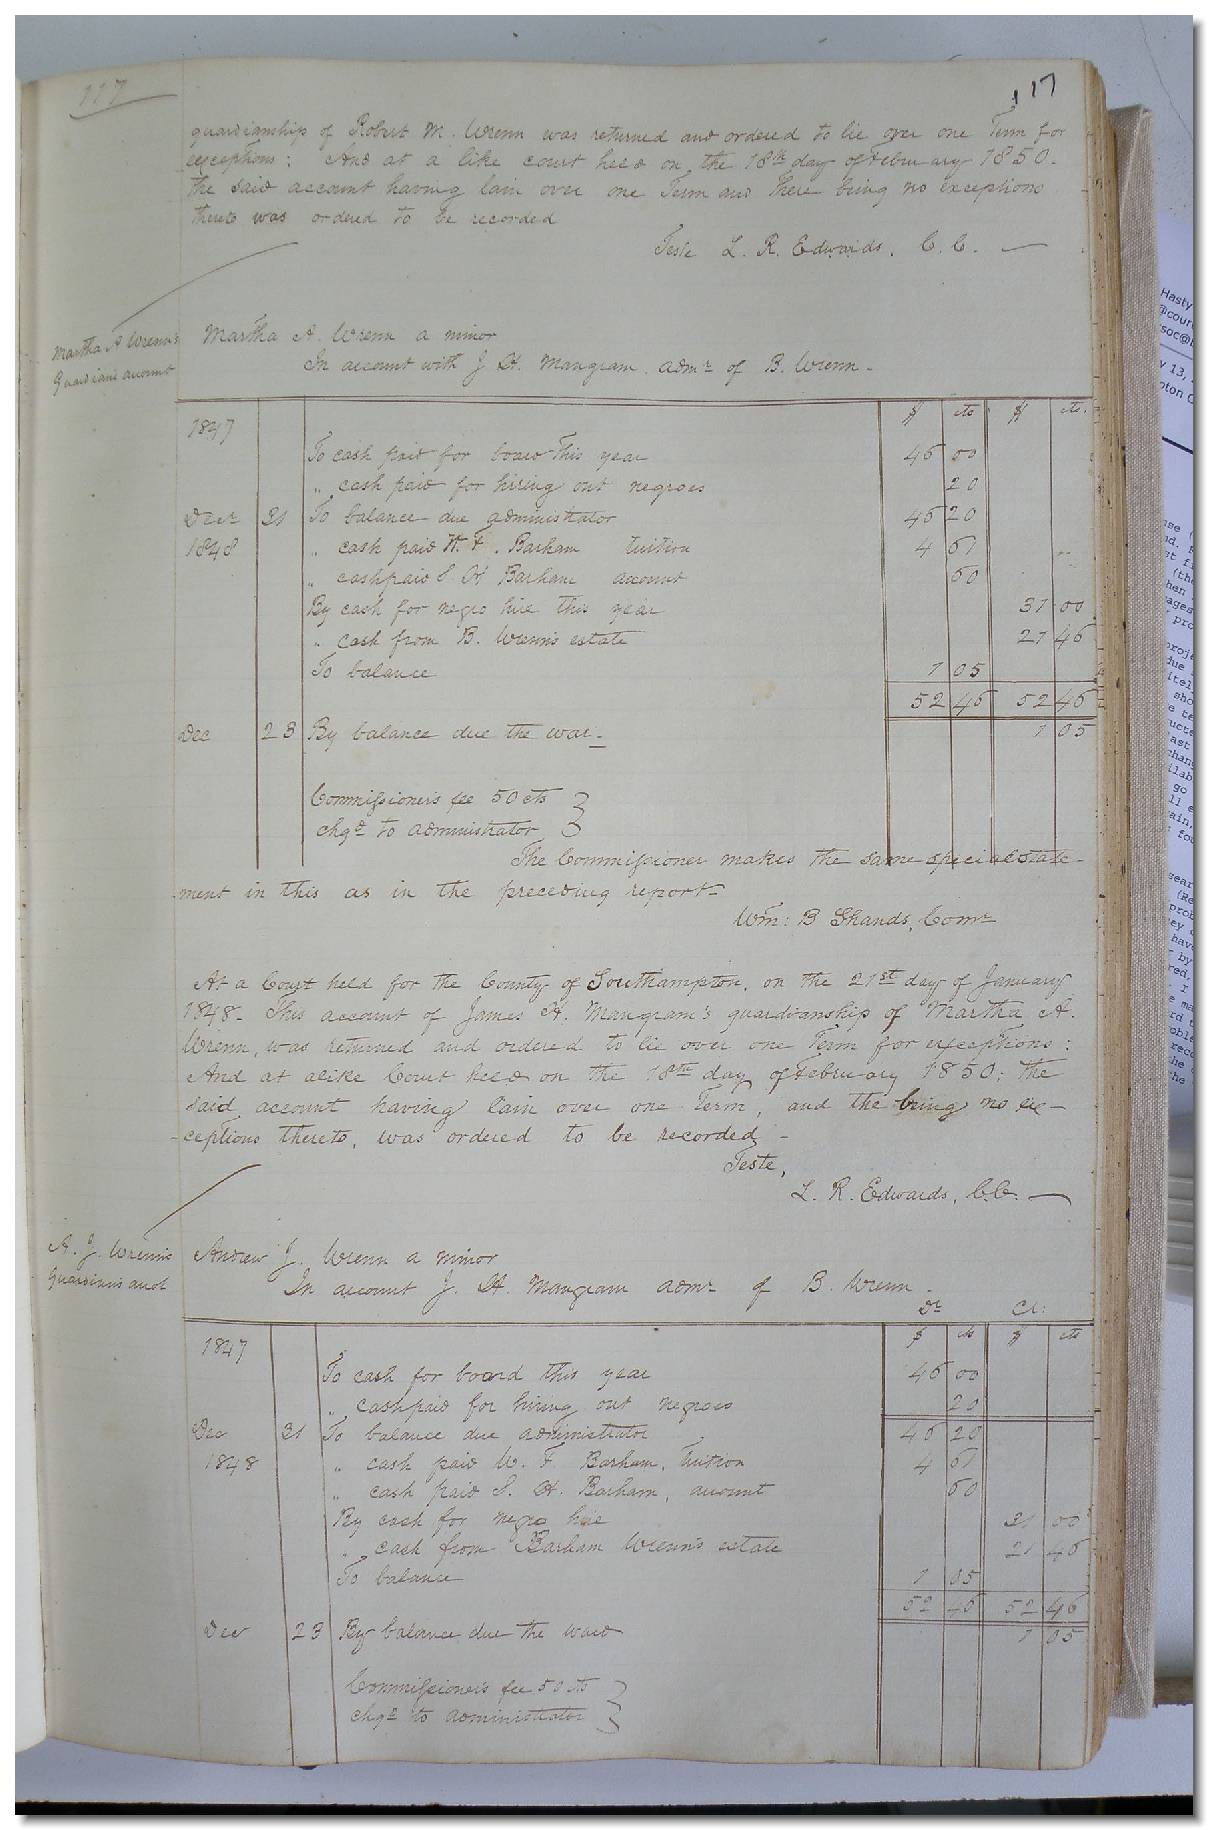 117
117
guardianship of Robert M. Wrenn was returned and ordered to lie over one Term for
exceptions: And at a like court held on the 18th day of February 1850.
the said account having lain over one Term and there being no exceptions
thereto was ordered to be recorded
Teste L. R. Edwards, C. C.
Martha A Wrenn's
Guardians account
Martha A. Wrenn a minor
In account with J. H. Mangram. admr of B. Wrenn.
$ cts $ cts.
1847
To cash paid for board this year 46 00
" cash paid for hiring out negroes 20
Decr 31 To balance due administrator 46 20
1848 " cash paid W. F. Barham tuition 4 61
" cash paid S. H Barham account 60
By cash for negro hire this year 31 00
" cash from B. Wrenn's estate 21 46
To balance 1 05
52 46 52 46
Dec 23 By balance due the war_ 1 05
Commissioner's fee 50 cts
chgd to administrator
The Commissioner makes the same special state-
ment in this as in the preceding report-
Wm: B Shands, Comr
At a Court held for the County of Southampton, on the 21st day of January
1848- This account of James H. Mangram's guardianship of Martha A.
Wrenn, was returned and ordered to lie over one Term for exceptions:
And at alike Court held on the 18th day of February 1850; the
said account having lain over one Term, and the being no ex-
-ceptions thereto, was ordered to be recorded-
Teste,
L. R. Edwards, C.C.
A. J. Wrenn's
Guardian's acct
Andrew J. Wrenn a minor
In account J. H. Mangram admr of B. Wrenn.
Dr Cr:
$ cts $ cts
1847
To cash for board this year 46 00
" cash paid for hiring out negroes 20
Dec 31 To balance due administrator 46 20
1848 " cash paid W. F Barham, Tuition 4 61
" cash paid S. H. Barham, account 60
By cash for negro hire 31 00
" cash from Barham Wrenn's estate 21 46
To balance 1 05
52 46 52 46
Dec 23 By balance due the ward 1 05
Commissioner's fee 50 cts
chgd to administrator